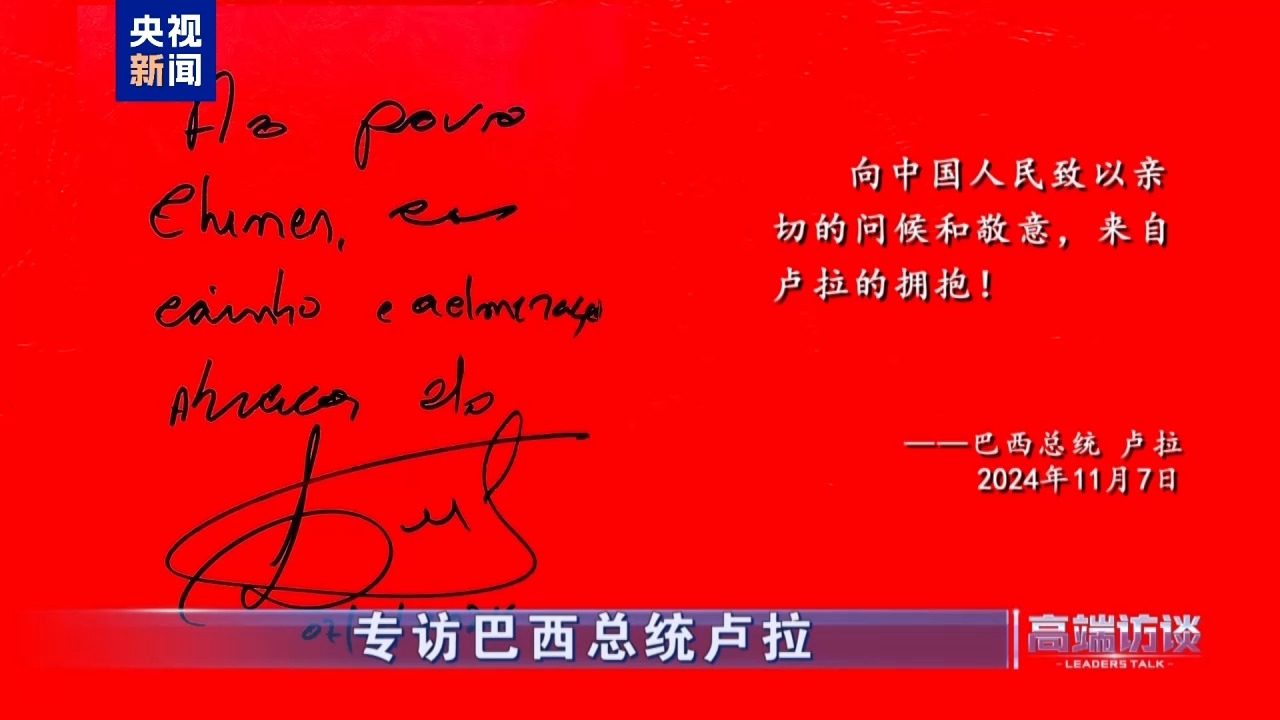 央视
新闻
Ao povo
Chines, com
carinho e admiração
Abraços do
Lula
07/
向中国人民致以亲
切的问候和敬意，来自
卢拉的拥抱！
——巴西总统 卢拉
2024年11月7日
专访巴西总统卢拉
高端访谈
-LEADERS TALK-